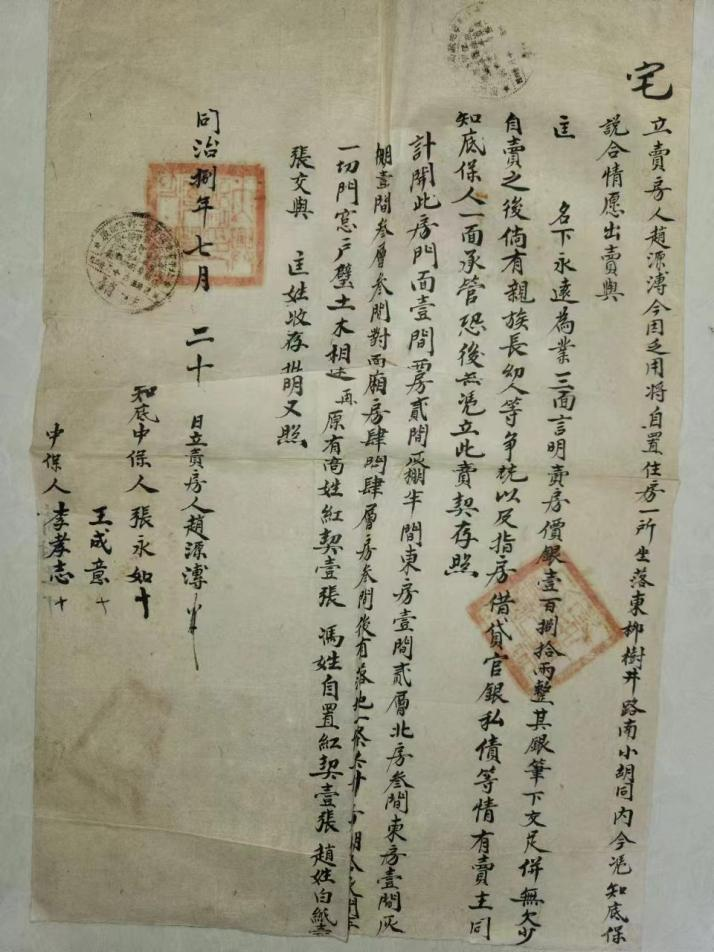 宅
立賣房人趙源溥今因乏用將自置住房一所坐落東柳樹井路南小胡同內今憑知底保
說合情愿出賣與
匡 名下永遠為業三面言明賣房價銀壹百捌拾兩整其銀筆下交足併無欠少
自賣之後倘有親族長幼人等爭競以及指房借貸官銀私債等情有賣主同
知底保人一面承管恐後無憑立此賣契存照
計開此房門面壹間西房貳間灰棚半間東房壹間貳層北房叁間東房壹間灰
棚壹間叁層叁間對面廂房肆間肆層房叁間後有落地一條
一切門窓戶壁土木相連再原有高姓紅契壹張馮姓自置紅契壹張趙姓白紙壹
張交與 匡姓收存批明又照
同治捌年七月二十日立賣房人趙源溥
知底中保人張永如十
王成意十
中保人李孝志十